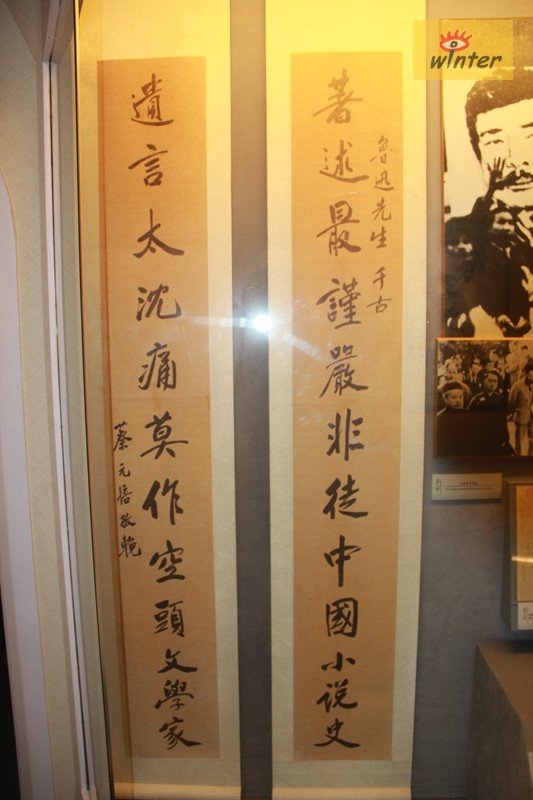 魯迅先生千古
著述最謹嚴非徒中國小说史
遺言太沈痛莫作空頭文學家
蔡元培敬輓
winter